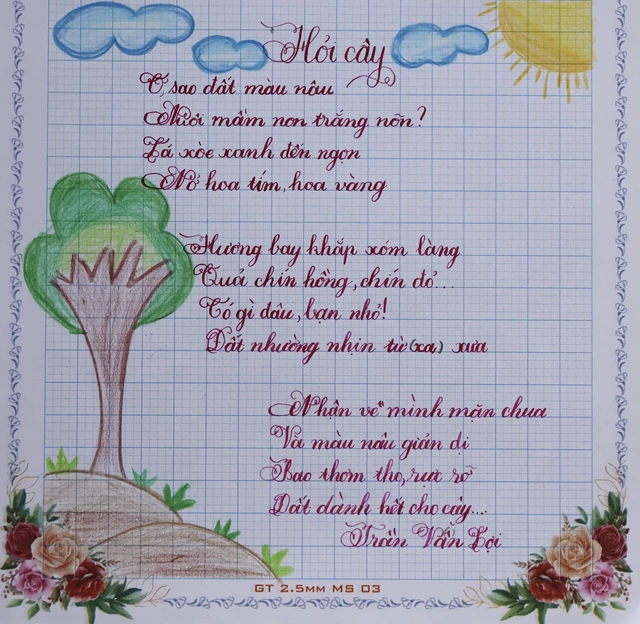 Hỏi cây
Vì sao đất màu nâu
Nuôi mầm non trắng nõn?
Lá xòe xanh đến ngọn
Nở hoa tím, hoa vàng
Hương bay khắp xóm làng
Quả chín hồng, chín đỏ...
Có gì đâu, bạn nhỏ!
Đất nhường nhịn từ (xa) xưa
Nhận về mình mặn chua
Và màu nâu giản dị
Bao thơm tho, rực rỡ
Đất dành hết cho cây...
Trần Văn Lợi
GT 2.5MM MS 03